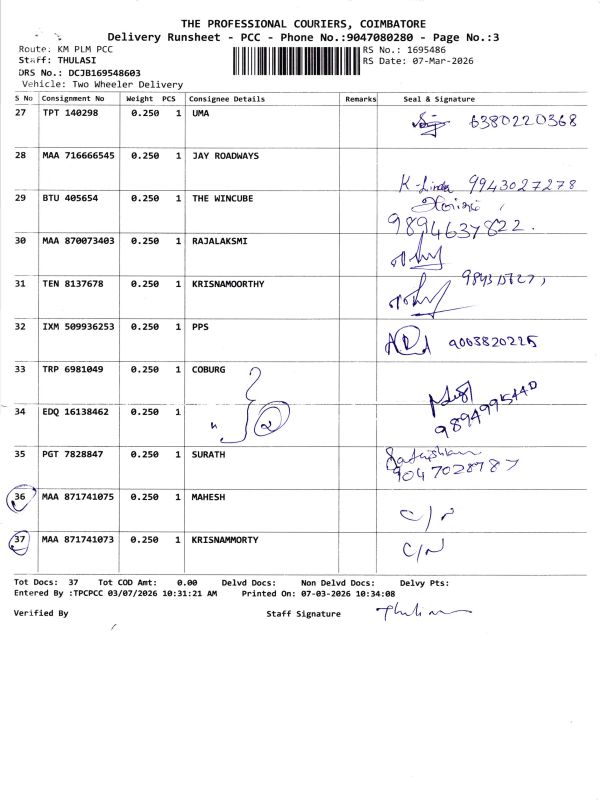 THE PROFESSIONAL COURIERS, COIMBATORE
Delivery Runsheet - PCC - Phone No.:9047080280 - Page No.:3
Route: KM PLM PCC
RS No.: 1695486
Staff: THULASI
RS Date: 07-Mar-2026
DRS No.: DCJB169548603
Vehicle: Two Wheeler Delivery
S No Consignment No Weight PCS Consignee Details Remarks Seal & Signature
27 TPT 140298 0.250 1 UMA 6380220368
28 MAA 716666545 0.250 1 JAY ROADWAYS
K-Linda 9943027278
29 BTU 405654 0.250 1 THE WINCUBE
9894637822.
30 MAA 870073403 0.250 1 RAJALAKSMI
31 TEN 8137678 0.250 1 KRISNAMOORTHY
32 IXM 509936253 0.250 1 PPS 9003820225
33 TRP 6981049 0.250 1 COBURG
34 EDQ 16138462 0.250 1 " 2
9894995440
35 PGT 7828847 0.250 1 SURATH
9047028787
36 MAA 871741075 0.250 1 MAHESH C/N
37 MAA 871741073 0.250 1 KRISNAMMORTY C/N
Tot Docs: 37 Tot COD Amt: 0.00 Delvd Docs: Non Delvd Docs: Delvy Pts:
Entered By :TPCPCC 03/07/2026 10:31:21 AM Printed On: 07-03-2026 10:34:08
Verified By Staff Signature